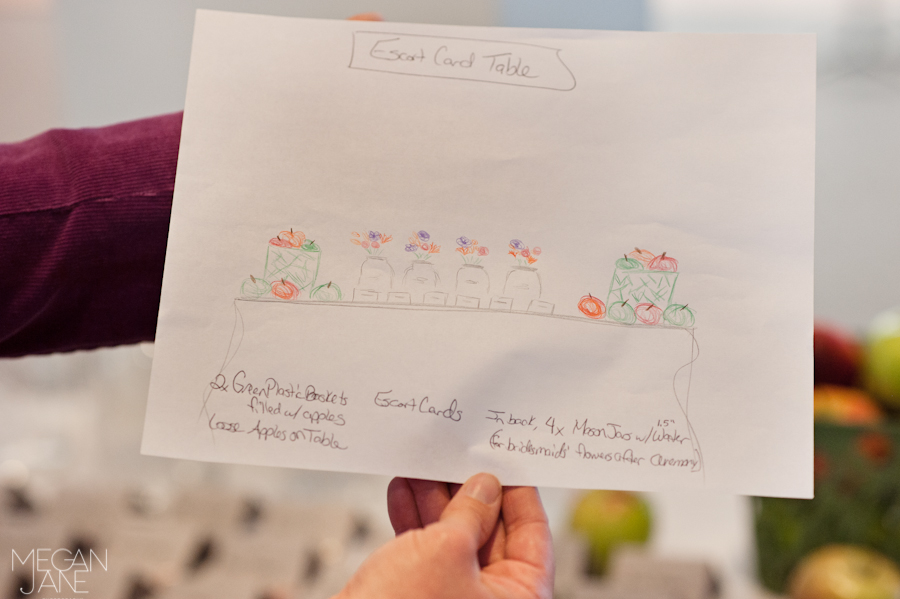 Escort Card Table
2x Green Plastic Baskets
filled w/ apples
Loose Apples on Table
Escort Cards
In back, 4x Mason Jars w/ 1.5" Water
(for bridesmaids' flowers after ceremony)
MEGAN
JANE